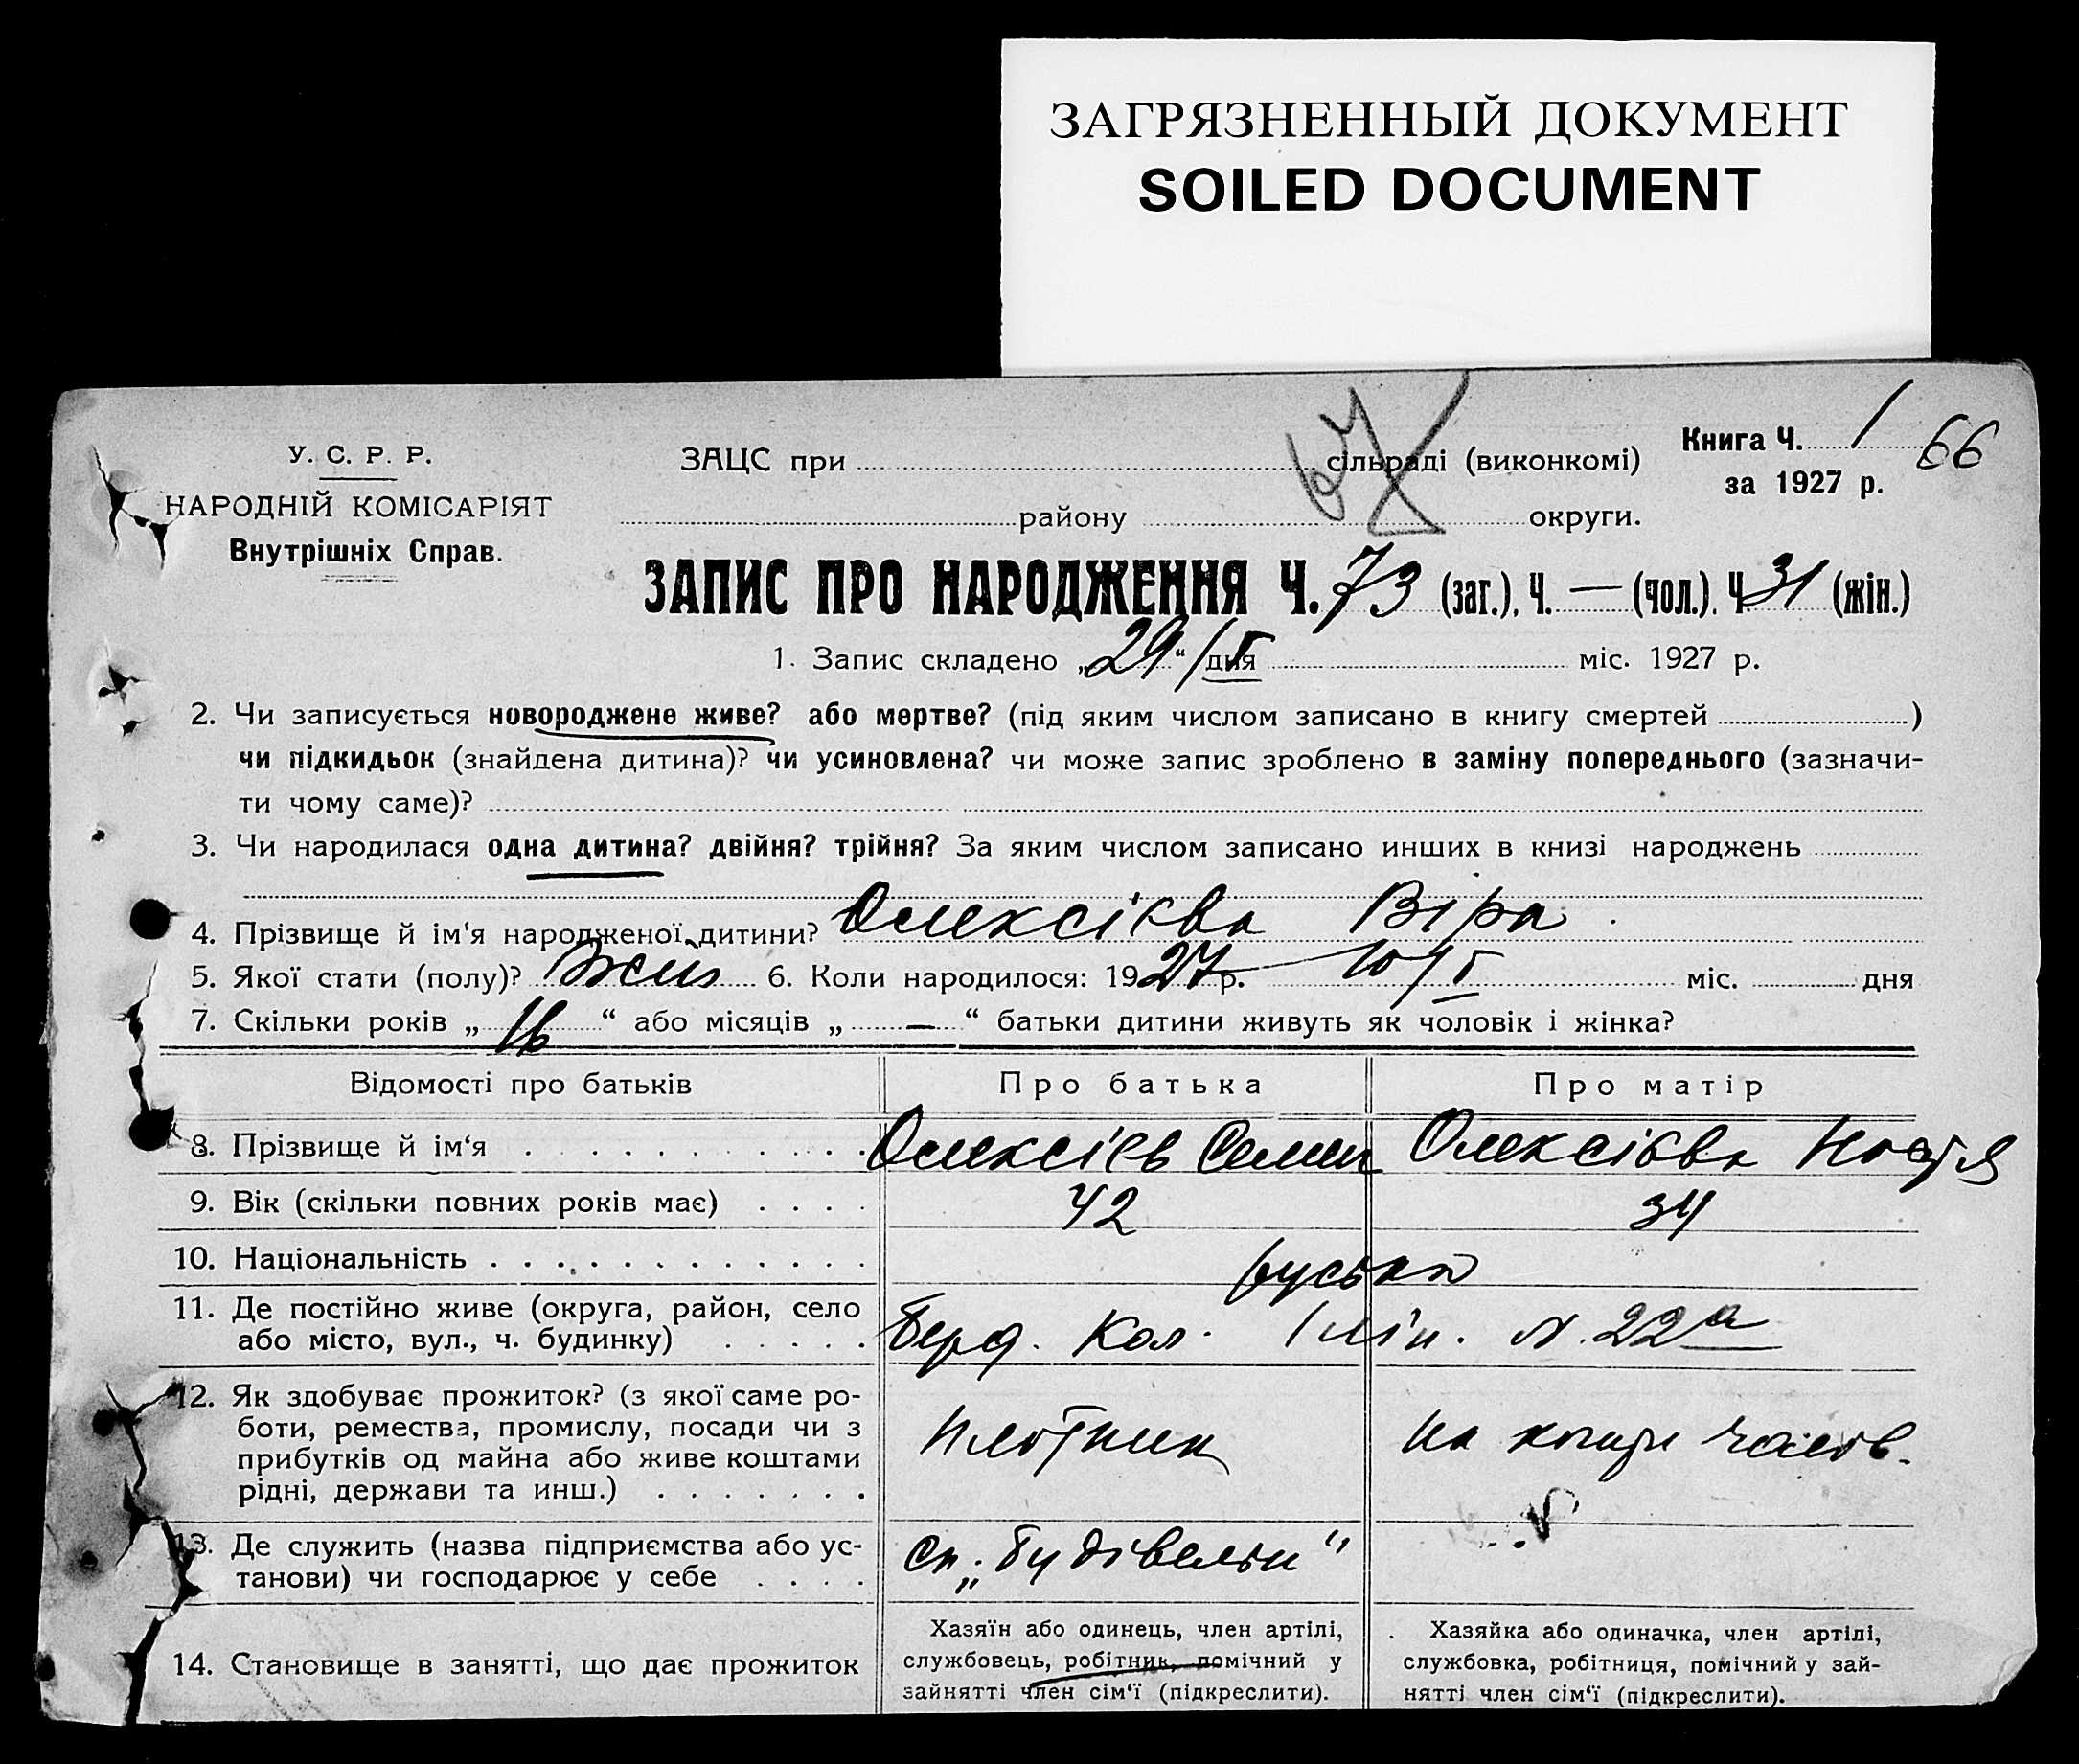 ЗАГРЯЗНЕННЫЙ ДОКУМЕНТ
SOILED DOCUMENT
У. С. Р. Р.
НАРОДНІЙ КОМІСАРІЯТ
Внутрішніх Справ.
ЗАЦС при сільраді (виконкомі)
району округи.
Книга Ч. 1 66
за 1927 р.
ЗАПИС ПРО НАРОДЖЕННЯ Ч. 73 (заг.), Ч. — (чол.). Ч. 31 (жін.)
1. Запис складено „29“ / дня I міс. 1927 р.
2. Чи записується новороджене живе? або мертве? (під яким числом записано в книгу смертей )
чи підкидьок (знайдена дитина)? чи усиновлена? чи може запис зроблено в заміну попереднього (зазначи-
ти чому саме)?
3. Чи народилася одна дитина? двійня? трійня? За яким числом записано инших в книзі народжень
4. Прізвище й ім‘я народженої дитини? Олексієва Віра
5. Якої стати (полу)? жін 6. Коли народилося: 1927 р. 10/I міс. дня
7. Скільки років „16“ або місяців „—“ батьки дитини живуть як чоловік і жінка?
Відомості про батьків Про батька Про матір
8. Прізвище й ім‘я Олексієв Семен Олексієва Настя
9. Вік (скільки повних років має) 42 34
10. Національність руська
11. Де постійно живе (округа, район, село
або місто, вул., ч. будинку) Берд. Кол. 1 лін. N. 22а
12. Як здобуває прожиток? (з якої саме ро-
боти, ремества, промислу, посади чи з
прибутків од майна або живе коштами
рідні, держави та инш.)
Плотник На кошти чолов.
13. Де служить (назва підприємства або ус-
танови) чи господарює у себе
Сп. „Будівельн“
14. Становище в занятті, що дає прожиток
Хазяїн або одинець, член артілі,
службовець, робітник, помічний у
зайнятті член сім‘ї (підкреслити).
Хазяйка або одиначка, член артілі,
службовка, робітниця, помічний у зай-
нятті член сім‘ї (підкреслити).